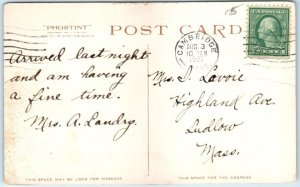 "PHOSTINT"
POST CARD
15
CAMBRIDGE
AUG 3
10 AM
Arrived last night
and am having
a fine time.
Mrs. A. Landry.
Mrs. S. Lavoie
Highland Ave.
Ludlow
Mass.
THIS SPACE MAY BE USED FOR MESSAGE.
THIS SPACE FOR ADDRESS ONLY.